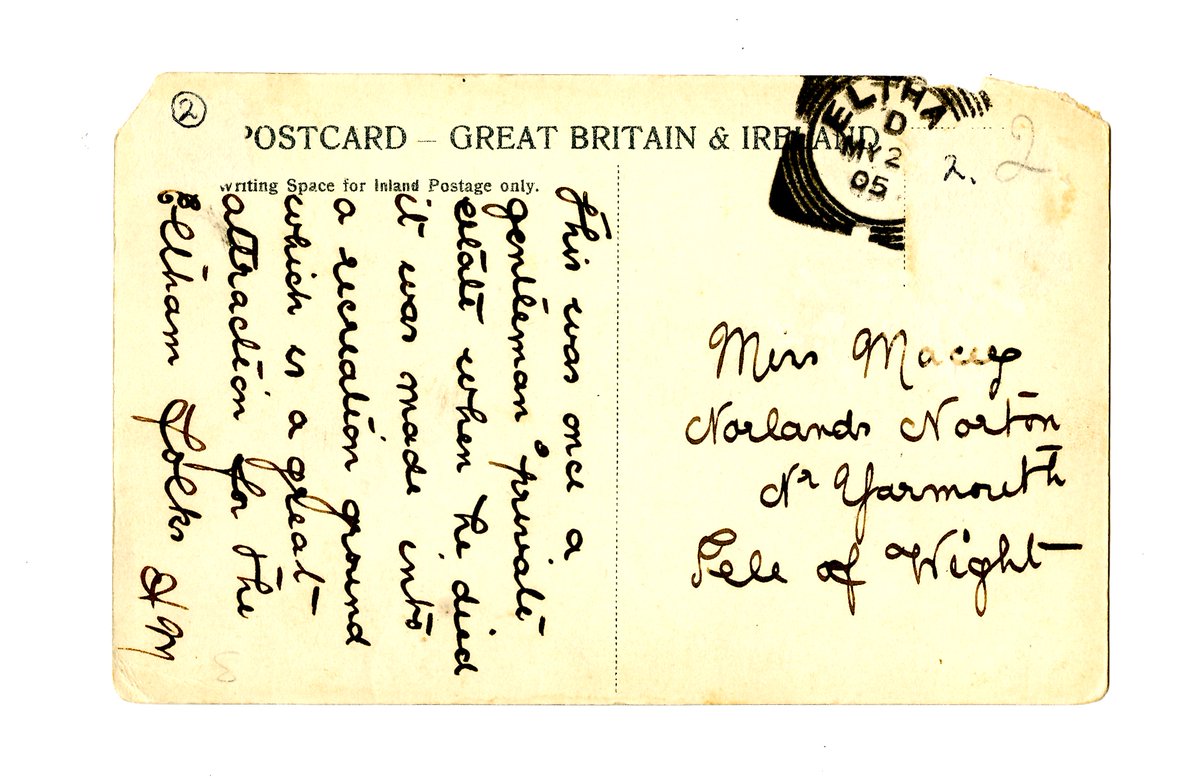 ②
POSTCARD — GREAT BRITAIN & IRELAND
Writing Space for Inland Postage only.
ELTHA
D
MY 2
05
2.
2
This was once a
gentleman private
estate when he died
it was made into
a recreation ground
which is a great
attraction for the
Eltham Folks HM
Miss Macey
Norlands Norton
Nr Yarmouth
Isle of Wight